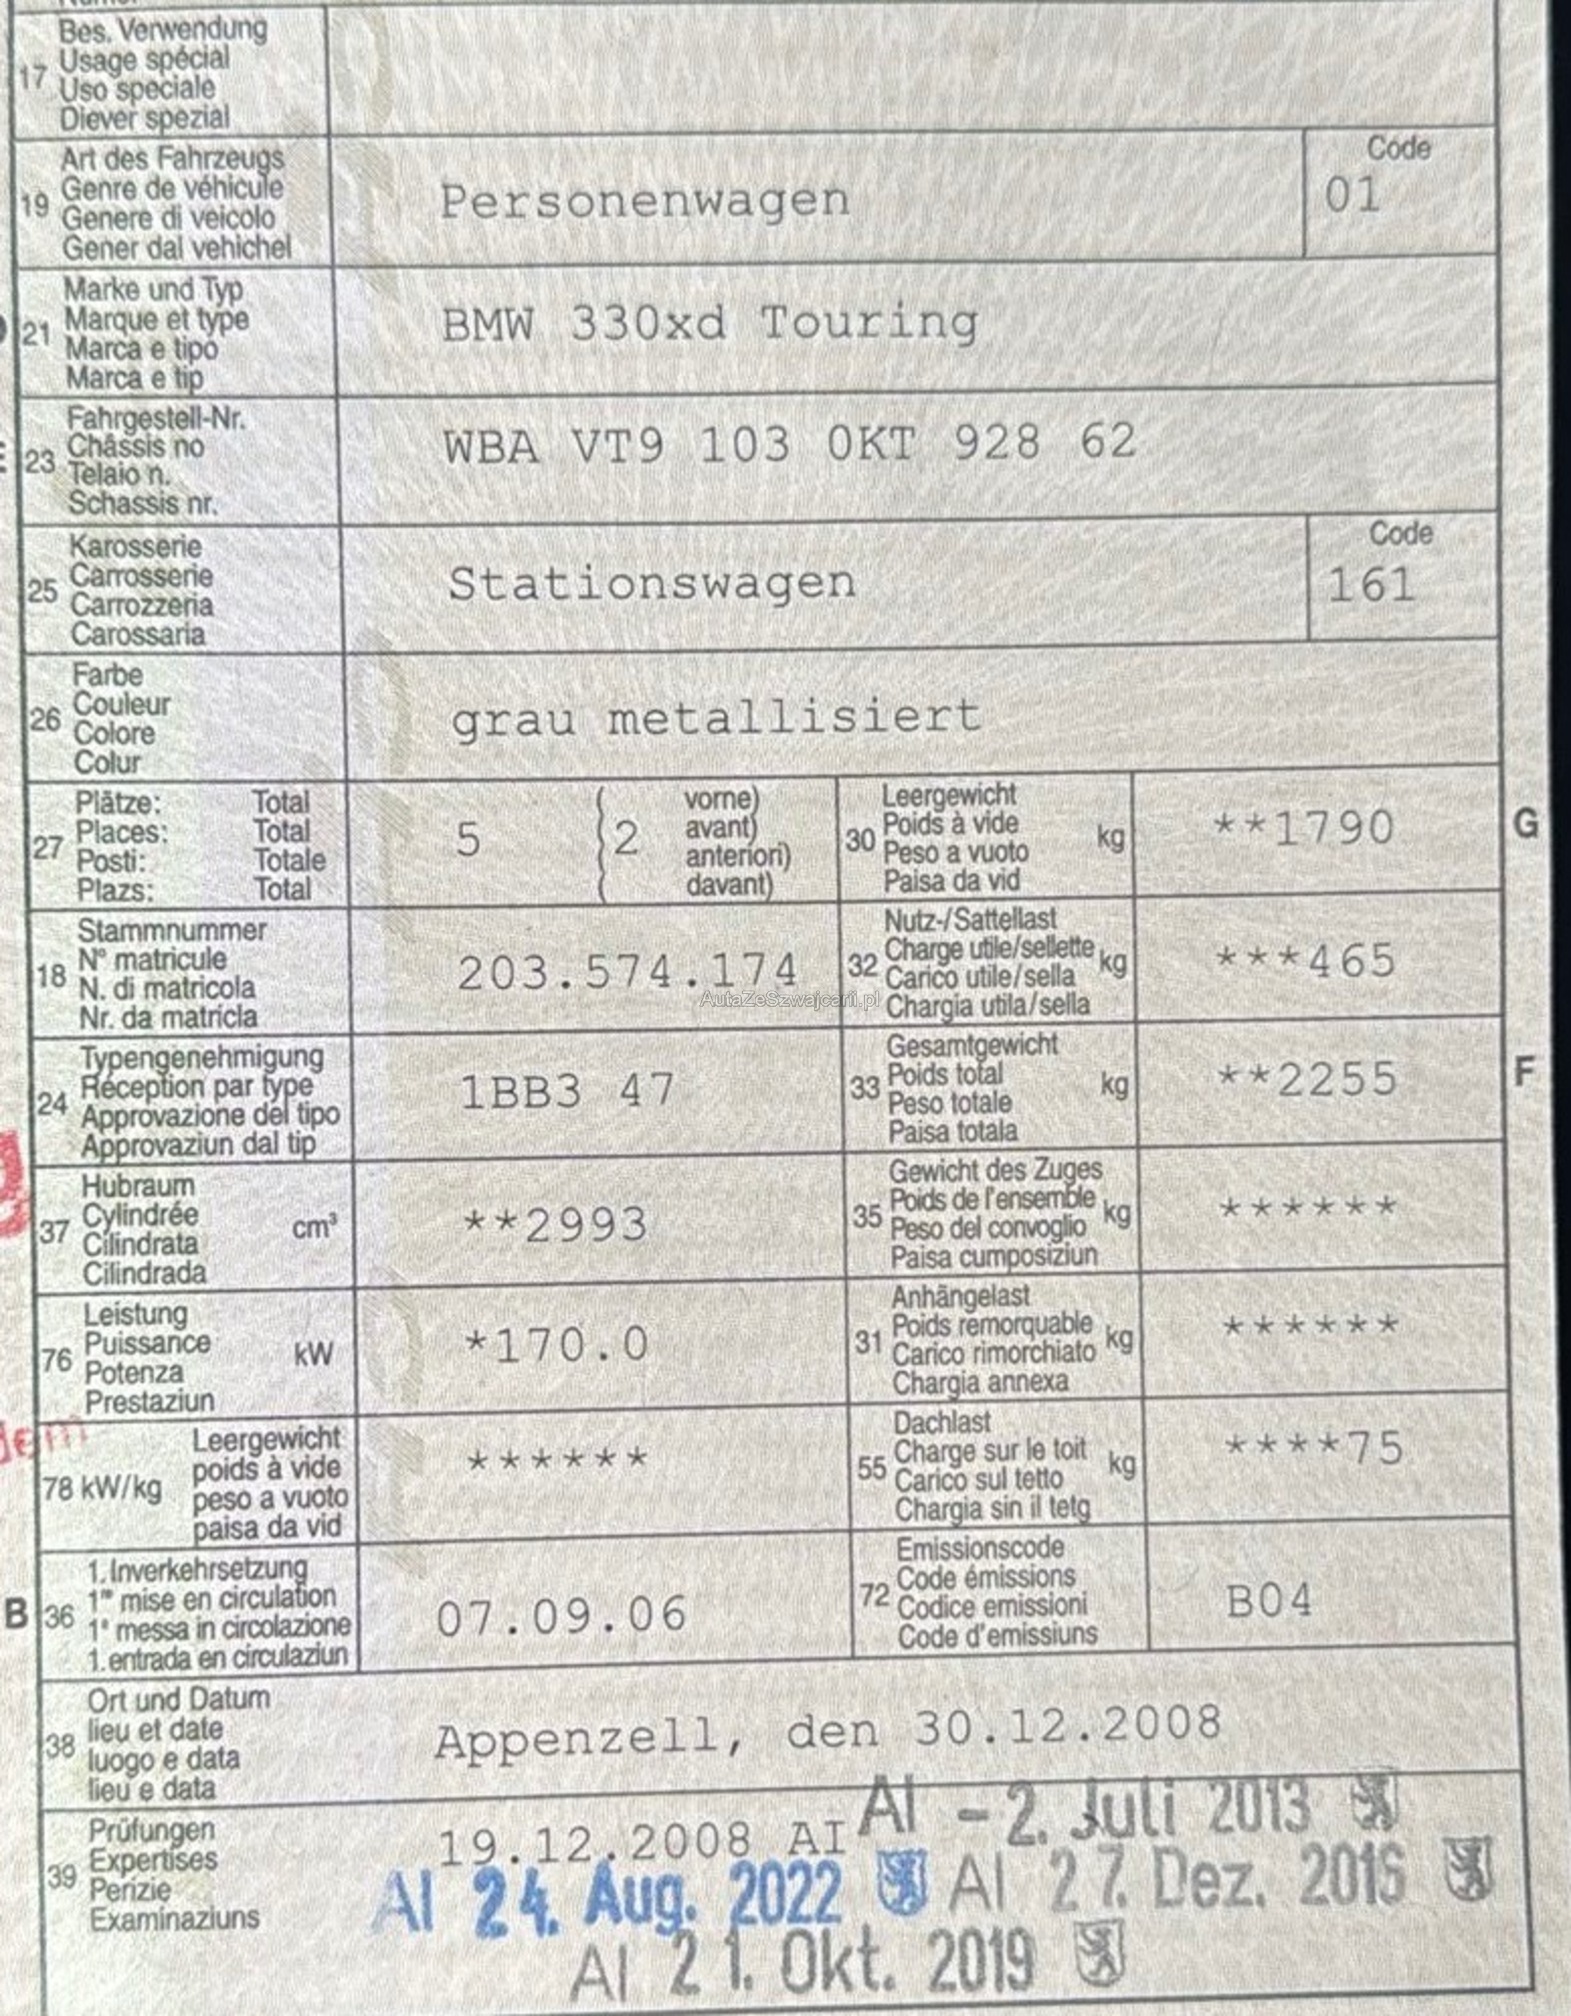 Bes. Verwendung
17 Usage spécial
Uso speciale
Diever spezial
Art des Fahrzeugs Code
19 Genre de véhicule Personenwagen 01
Genere di veicolo
Gener dal vehichel
Marke und Typ
21 Marque et type BMW 330xd Touring
Marca e tipo
Marca e tip
Fahrgestell-Nr.
23 Châssis no WBA VT9 103 0KT 928 62
Telaio n.
Schassis nr.
Karosserie Code
25 Carrosserie Stationswagen 161
Carrozzeria
Carossaria
Farbe
26 Couleur grau metallisiert
Colore
Colur
Plätze: Total vorne)
27 Places: Total 5 (2 avant)
Posti: Totale anteriori)
Plazs: Total davant)
Leergewicht
30 Poids à vide kg **1790 G
Peso a vuoto
Paisa da vid
Stammnummer
18 N° matricule 203.574.174
N. di matricola
Nr. da matricla
Nutz-/Sattellast
32 Charge utile/sellette kg ***465
Carico utile/sella
Chargia utila/sella
AutaZeSzwajcarii.pl
Typengenehmigung
24 Réception par type 1BB3 47
Approvazione del tipo
Approvaziun dal tip
Gesamtgewicht
33 Poids total kg **2255 F
Peso totale
Paisa totala
Hubraum
37 Cylindrée cm³ **2993
Cilindrata
Cilindrada
Gewicht des Zuges
35 Poids de l'ensemble kg ******
Peso del convoglio
Paisa cumposiziun
Leistung
76 Puissance kW *170.0
Potenza
Prestaziun
Anhängelast
31 Poids remorquable kg ******
Carico rimorchiato
Chargia annexa
Leergewicht
78 kW/kg poids à vide ******
peso a vuoto
paisa da vid
Dachlast
55 Charge sur le toit kg ****75
Carico sul tetto
Chargia sin il tetg
1. Inverkehrsetzung
B 36 1re mise en circulation 07.09.06
1a messa in circolazione
1. entrada en circulaziun
Emissionscode
72 Code émissions B04
Codice emissioni
Code d'emissiuns
Ort und Datum
38 lieu et date Appenzell, den 30.12.2008
luogo e data
lieu e data
Prüfungen
39 Expertises 19.12.2008 AI AI - 2. Juli 2013
Perizie AI 24. Aug. 2022 AI 27. Dez. 2016
Examinaziuns AI 21. Okt. 2019